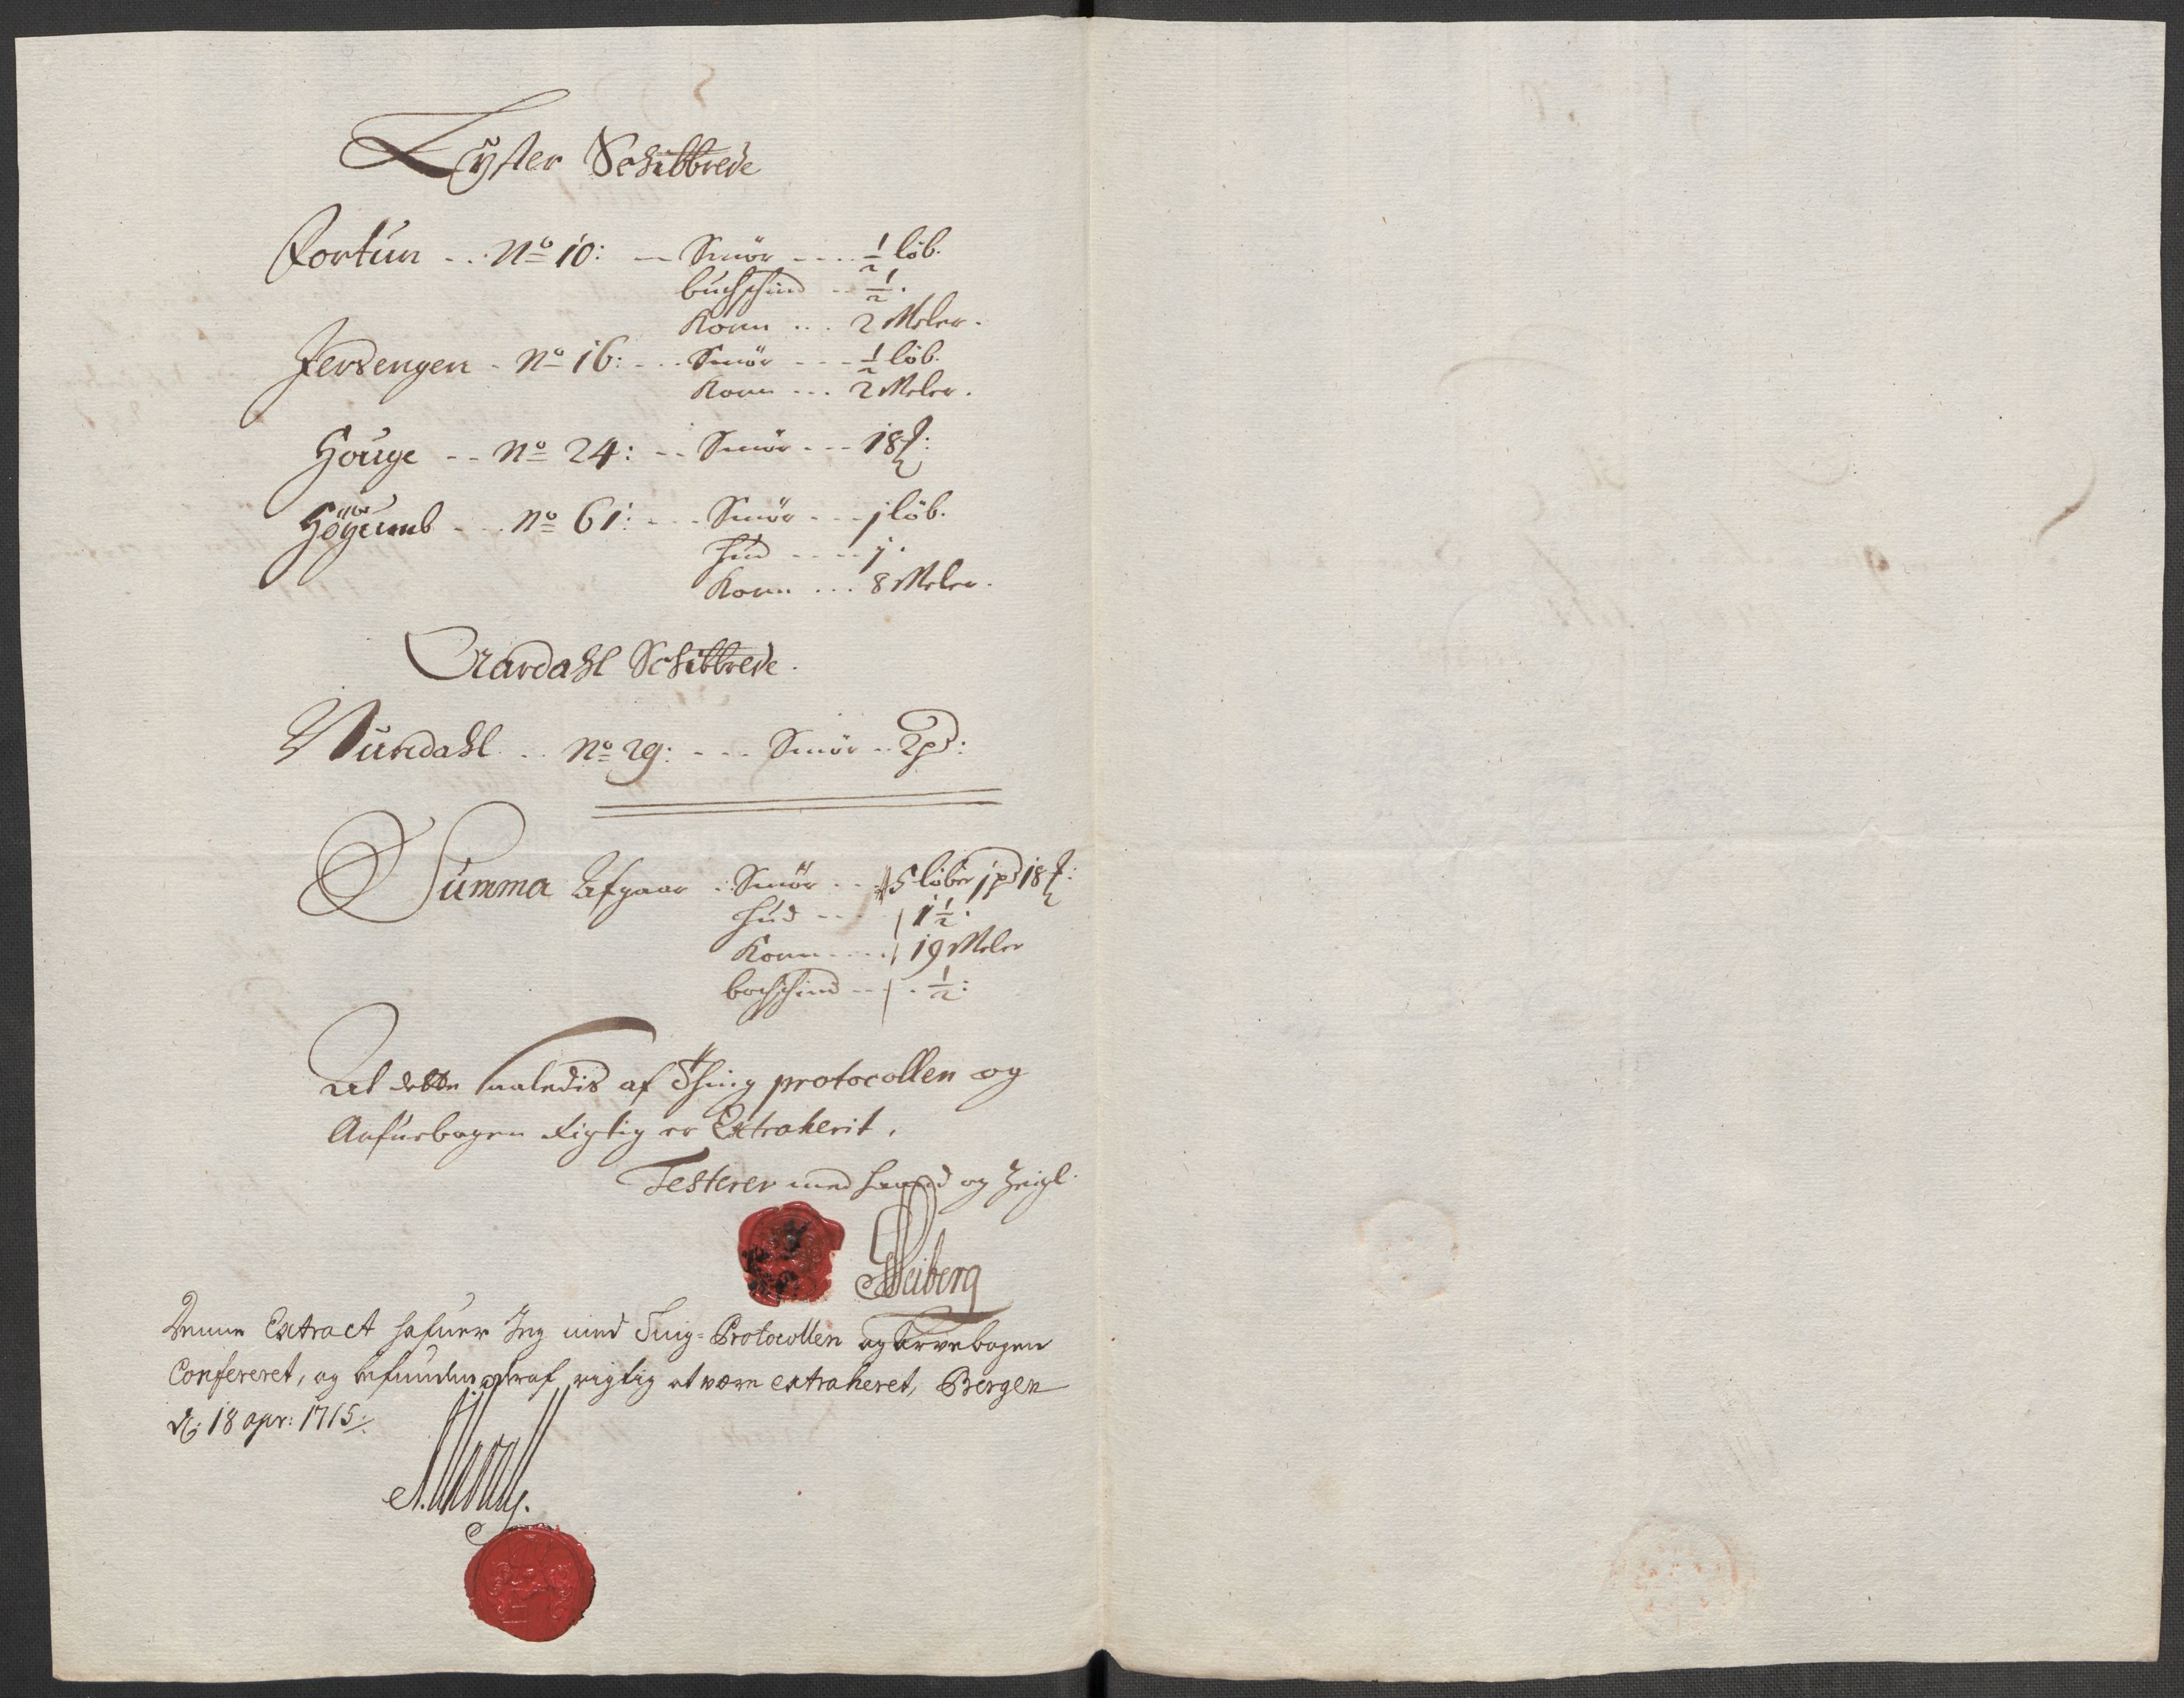 Lyster Schibbrede
Fortun - - . No 10: — Smör - - - - 1/2 löb.
buchschind - - 1/2.
Korn . . . 2 Meler.
Jersengen - No 16: - - . Smör - - - 1/2 löb.
Korn - - . 2 Meler.
Houge - - No 24: - - Smör - - - 18 ℔:
Högumb - - . No 61: - - . Smör - - - 1 löb.
Hud - - - - 1.
Korn . . . 8 Meler.
Aardahl Schibbrede.
Nundahl . . No 29: - - - Smör - - 2 pd:
Summa Afgaar . Smör . . 5 löber 1 pd 18 ℔:
Hud - - - 1 1/2.
Korn - - - . 19 Meler
bochschind - - . 1/2:
At dette saaledis af Thing protocollen og
Anfürbogen Rigtig er Extraherit.
Testerer med Haand og Zeigl.
Heiberg
Denne Extract hafuer Jeg med Ting-Protocollen og Skrivebogen
Confereret, og befunden deraf rigtig at være extraheret, Bergen
d: 18 apr: 1715: